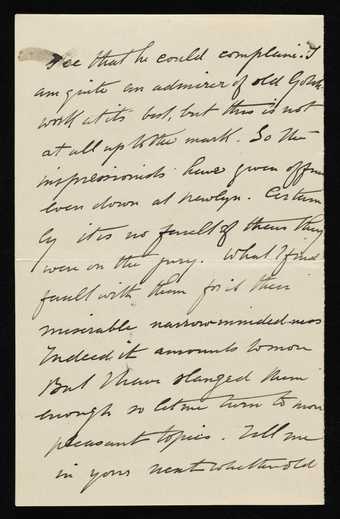 see that he could complain. I
am quite an admirer of old
work at its best, but this is not
at all up to the mark. So the
impressionists have given offence
even down at Newlyn. Certain
ly it is no fault of theirs they
were on the jury. What I find
fault with them for is their
miserable, narrow-minded-ness
Indeed it amounts to more
But I have slanged them
enough so let me turn to more
pleasant topics. Tell me
in your next whether old